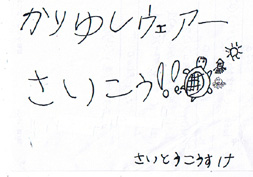 かりゆしウェアー
さいこう!!
さいとうこうすけ